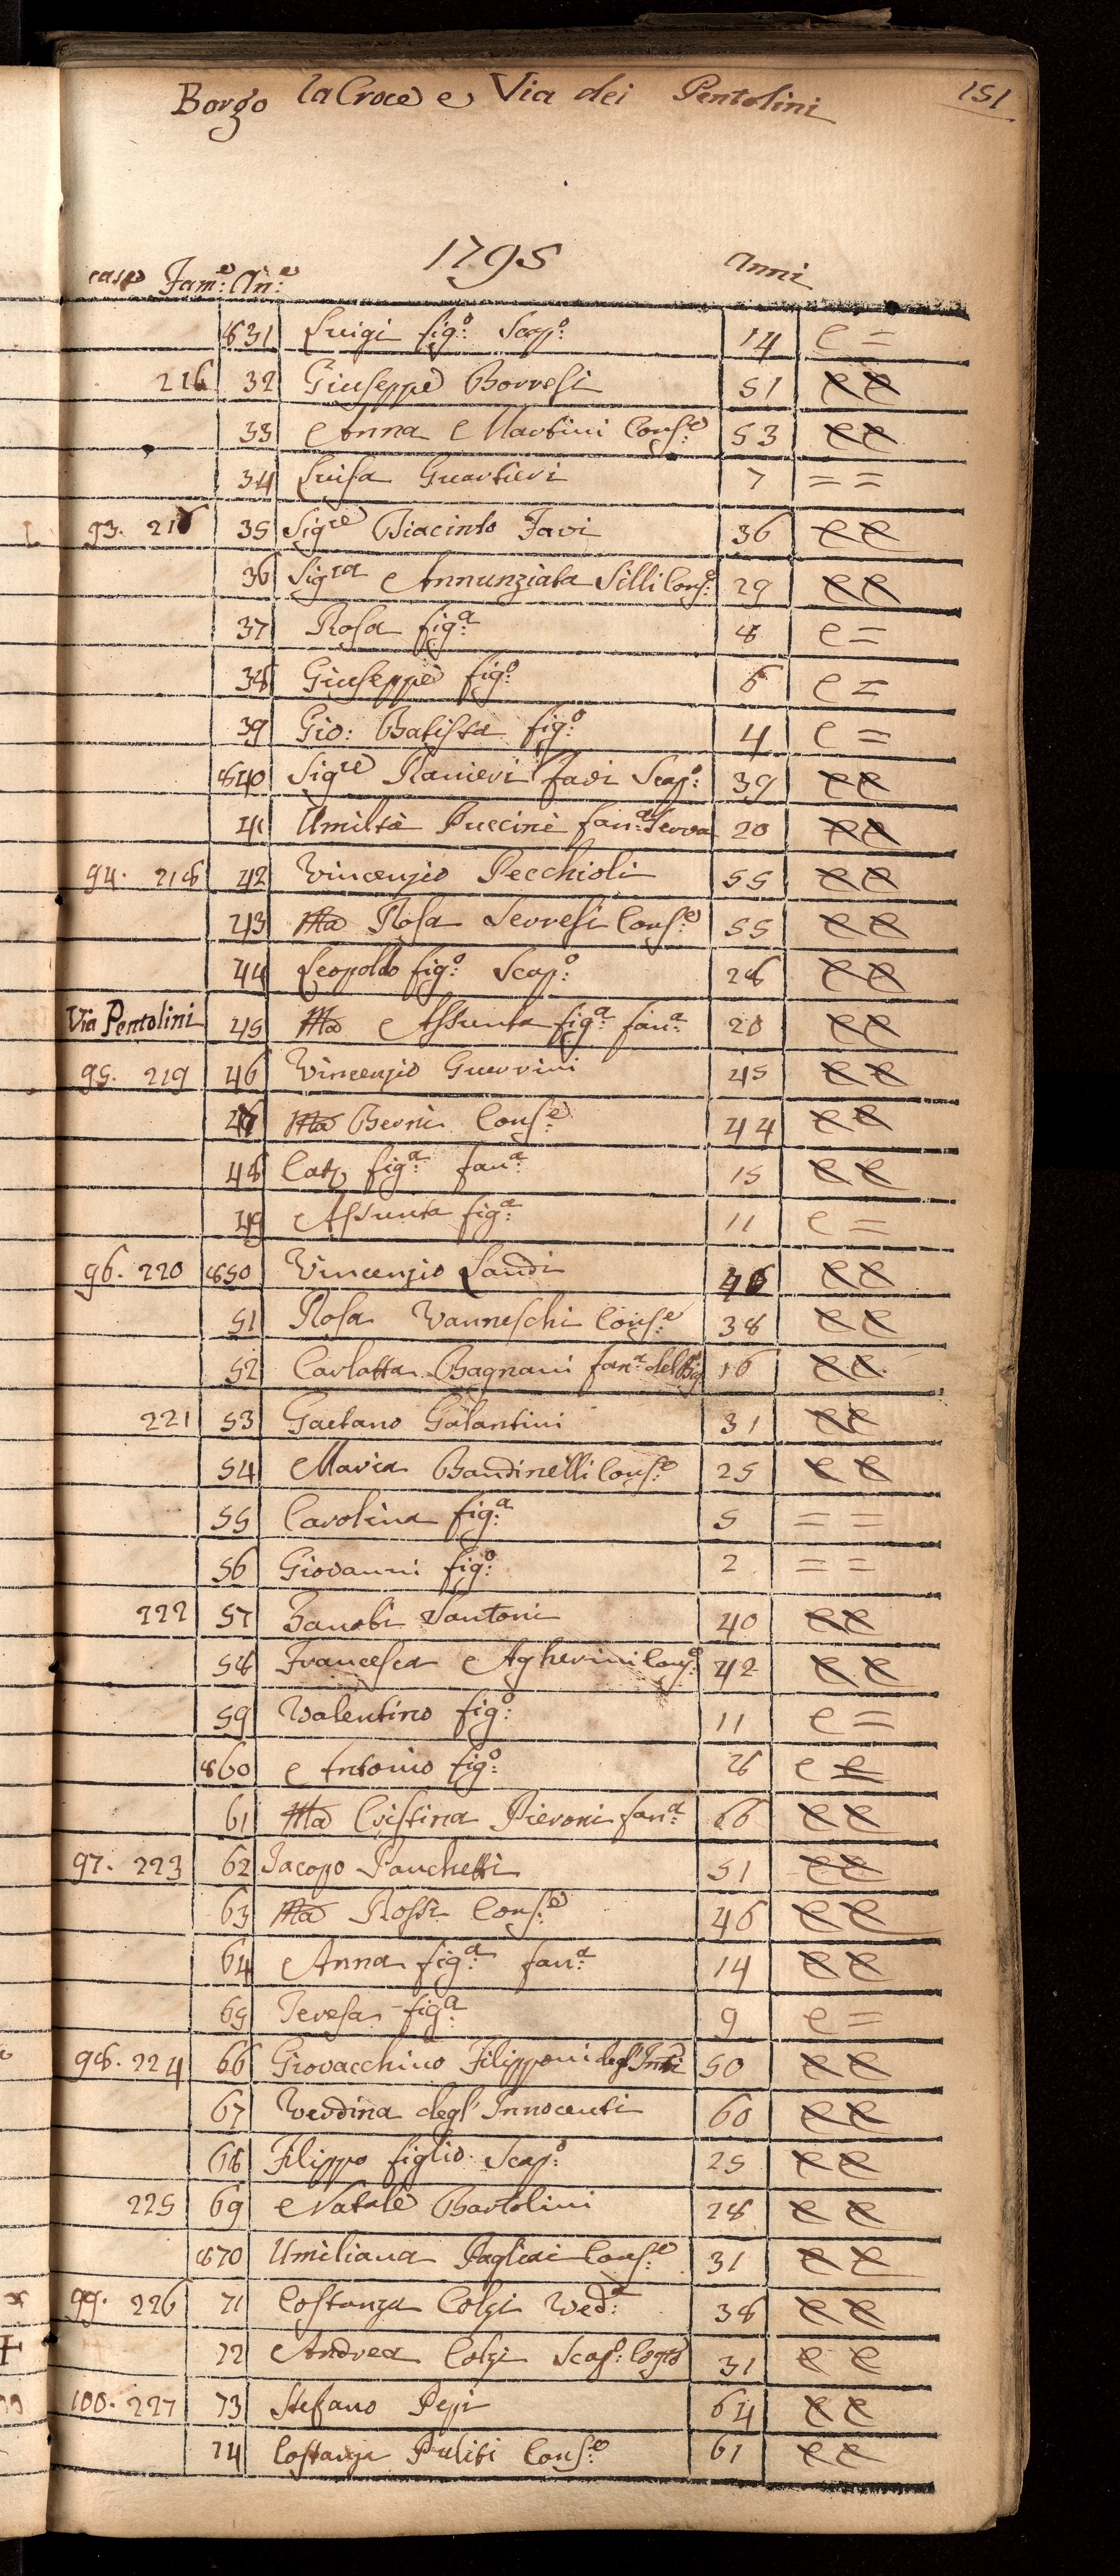 Borgo la Croce e Via dei Pentolini 151
1795
case Fam:e An:e Anni
831 Luigi fig:o Scap:o 14 e =
216 32 Giuseppe Borresi 51 e e
33 Anna Martini Cons:e 53 e e
34 Luisa Guartieri 7 = =
93. 217 35 Sig.re Giacinto Favi 36 e e
36 Sig.ra Annunziata Silli Cons:e 29 e e
37 Rosa fig:a 8 e =
38 Giuseppe fig:o 6 e =
39 Gio: Batista fig:o 4 e =
840 Sig.re Ranieri Favi Scap:o 39 e e
41 Umiltà Puccini fan:a Serva 20 e e
94. 218 42 Vincenzio Pecchioli 55 e e
43 Ma Rosa Serresi Cons:e 55 e e
44 Leopoldo fig:o Scap:o 28 e e
Via Pentolini 45 Ma Assunta fig:a fan:a 20 e e
95. 219 46 Vincenzio Guerrini 45 e e
47 Ma Berni Cons:e 44 e e
48 Cat. fig:a fan:a 15 e e
49 Assunta fig:a 11 e =
96. 220 850 Vincenzio Landi 46 e e
51 Rosa Vanneschi Cons:e 38 e e
52 Carlotta Bagnani fan:a 16 e e
221 53 Gaetano Galantini 31 e e
54 Maria Bandinelli Cons:e 25 e e
55 Carolina fig:a 5 = =
56 Giovanni fig:o 2 = =
222 57 Zanobi Santoni 40 e e
58 Francesca Agherini Cons:e 42 e e
59 Valentino fig:o 11 e =
860 Antonio fig:o e e
61 Ma Cristina Pieroni fan:a 66 e e
97. 223 62 Jacopo Panchetti 51 e e
63 Ma Rossi Cons:e 46 e e
64 Anna fig:a fan:a 14 e e
65 Teresa fig:a 9 e =
98. 224 66 Giovacchino Filipponi degl'Innti 50 e e
67 Verdina degl'Innocenti 60 e e
68 Filippo figlio Scap:o 25 e e
225 69 Natale Bartolini 28 e e
870 Umiliana Pagliai Cons:e 31 e e
99. 226 71 Costanza Colzi Ved:a 38 e e
72 Andrea Colzi Scap:o Cog.to 31 e e
100. 227 73 Stefano Pepi 64 e e
74 Costanza Puliti Cons:e 61 e e